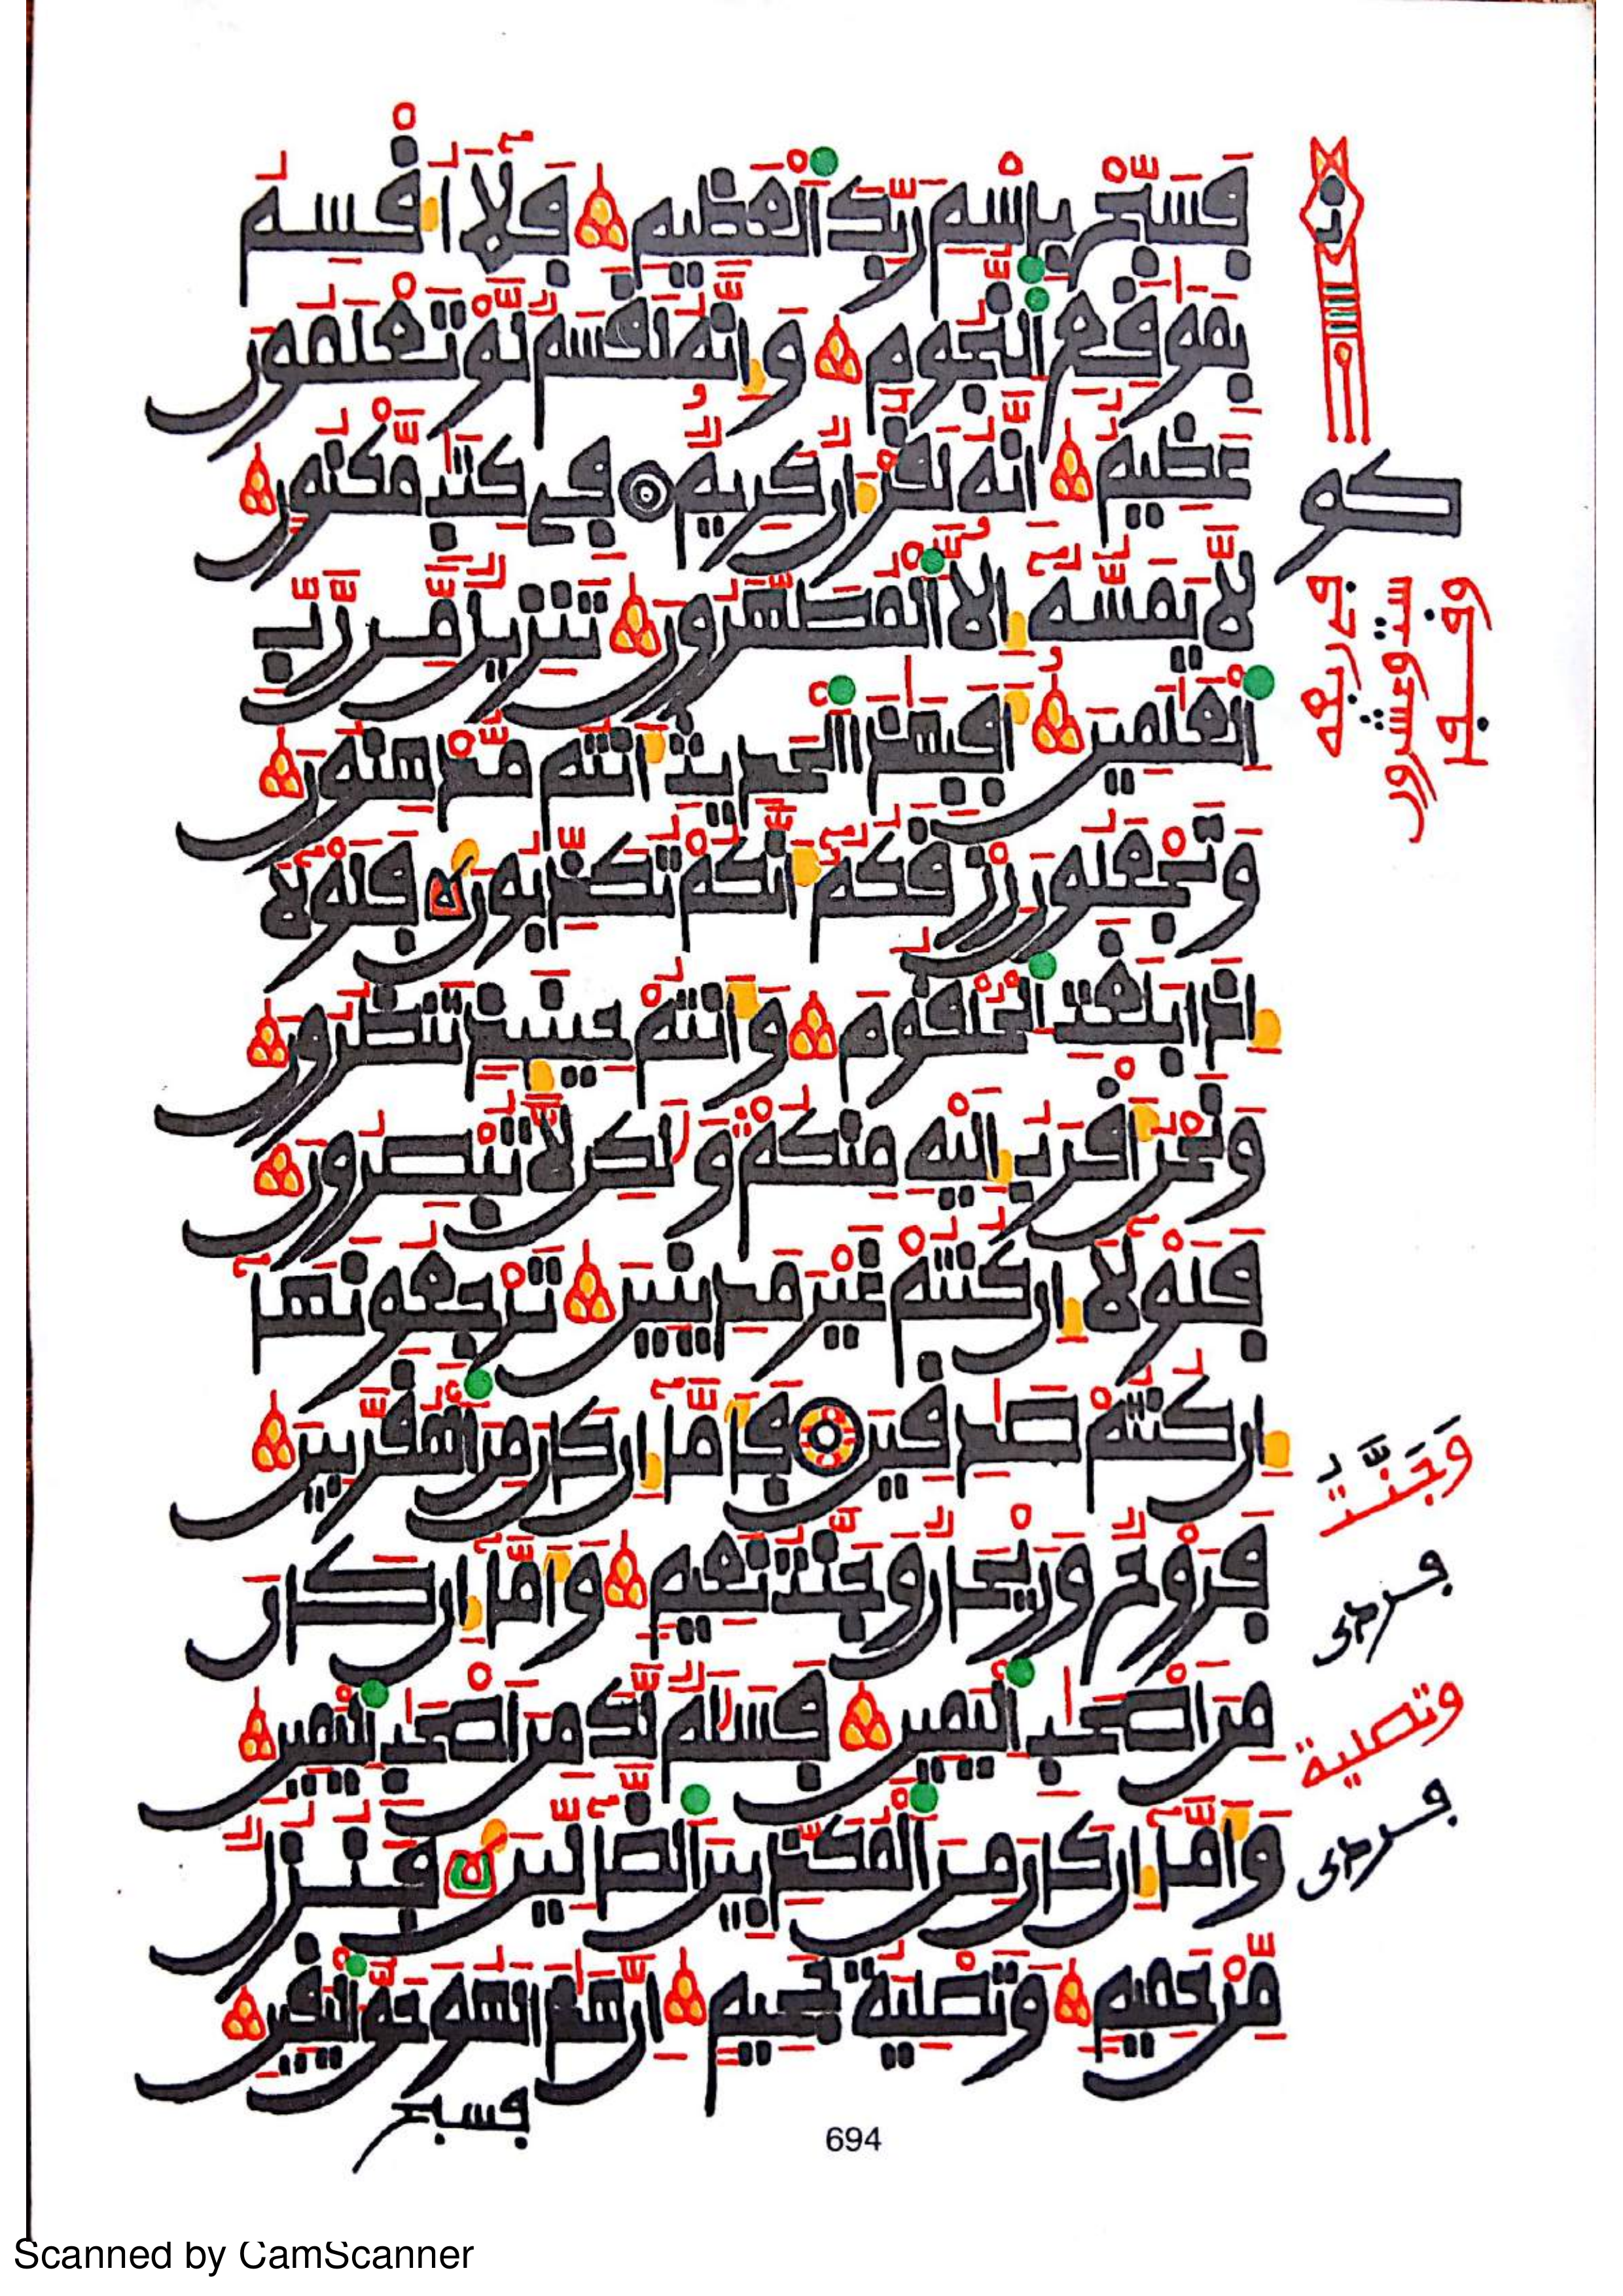 فَسَبِّحْ بِاسْمِ رَبِّكَ اَ۬لْعَظِيمِ فَلَآ أُقْسِمُ
بِمَوَٰقِعِ اِ۬لنُّجُومِ وَإِنَّهُۥ لَقَسَمٌ لَّوْ تَعْلَمُونَ
عَظِيمٌ إِنَّهُۥ لَقُرْءَانٌ كَرِيمٌ فِے كِتَٰبٍ مَّكْنُونٍ
لَّا يَمَسُّهُۥٓ إِلَّا اَ۬لْمُطَهَّرُونَ تَنزِيلٌ مِّن رَّبِّ
اِ۬لْعَٰلَمِينَ أَفَبِهَٰذَا اَ۬لْحَدِيثِ أَنتُم مُّدْهِنُونَ
وَتَجْعَلُونَ رِزْقَكُمُۥٓ أَنَّكُمْ تُكَذِّبُونَ فَلَوْلَآ
إِذَا بَلَغَتِ اِ۬لْحُلْقُومَ وَأَنتُمْ حِينَئِذٍ تَنظُرُونَ
وَنَحْنُ أَقْرَبُ إِلَيْهِ مِنكُمْ وَلَٰكِن لَّا تُبْصِرُونَ
فَلَوْلَآ إِن كُنتُمْ غَيْرَ مَدِينِينَ تَرْجِعُونَهَآ
إِن كُنتُمْ صَٰدِقِينَ فَأَمَّآ إِن كَانَ مِنَ اَ۬لْمُقَرَّبِينَ
فَرَوْحٌ وَرَيْحَانٌ وَجَنَّتُ نَعِيمٍ وَأَمَّآ إِن كَانَ
مِنَ اَصْحَٰبِ اِ۬لْيَمِينِ فَسَلَٰمٌ لَّكَ مِنَ اَصْحَٰبِ اِ۬لْيَمِينِ
وَأَمَّآ إِن كَانَ مِنَ اَ۬لْمُكَذِّبِينَ اَ۬لضَّآلِّينَ فَنُزُلٌ
مِّنْ حَمِيمٍ وَتَصْلِيَةُ جَحِيمٍ إِنَّ هَٰذَا لَهُوَ حَقُّ اُ۬لْيَقِينِ
فسبح
694
كو
وَجَنَّتُ
وتصلية
Scanned by CamScanner